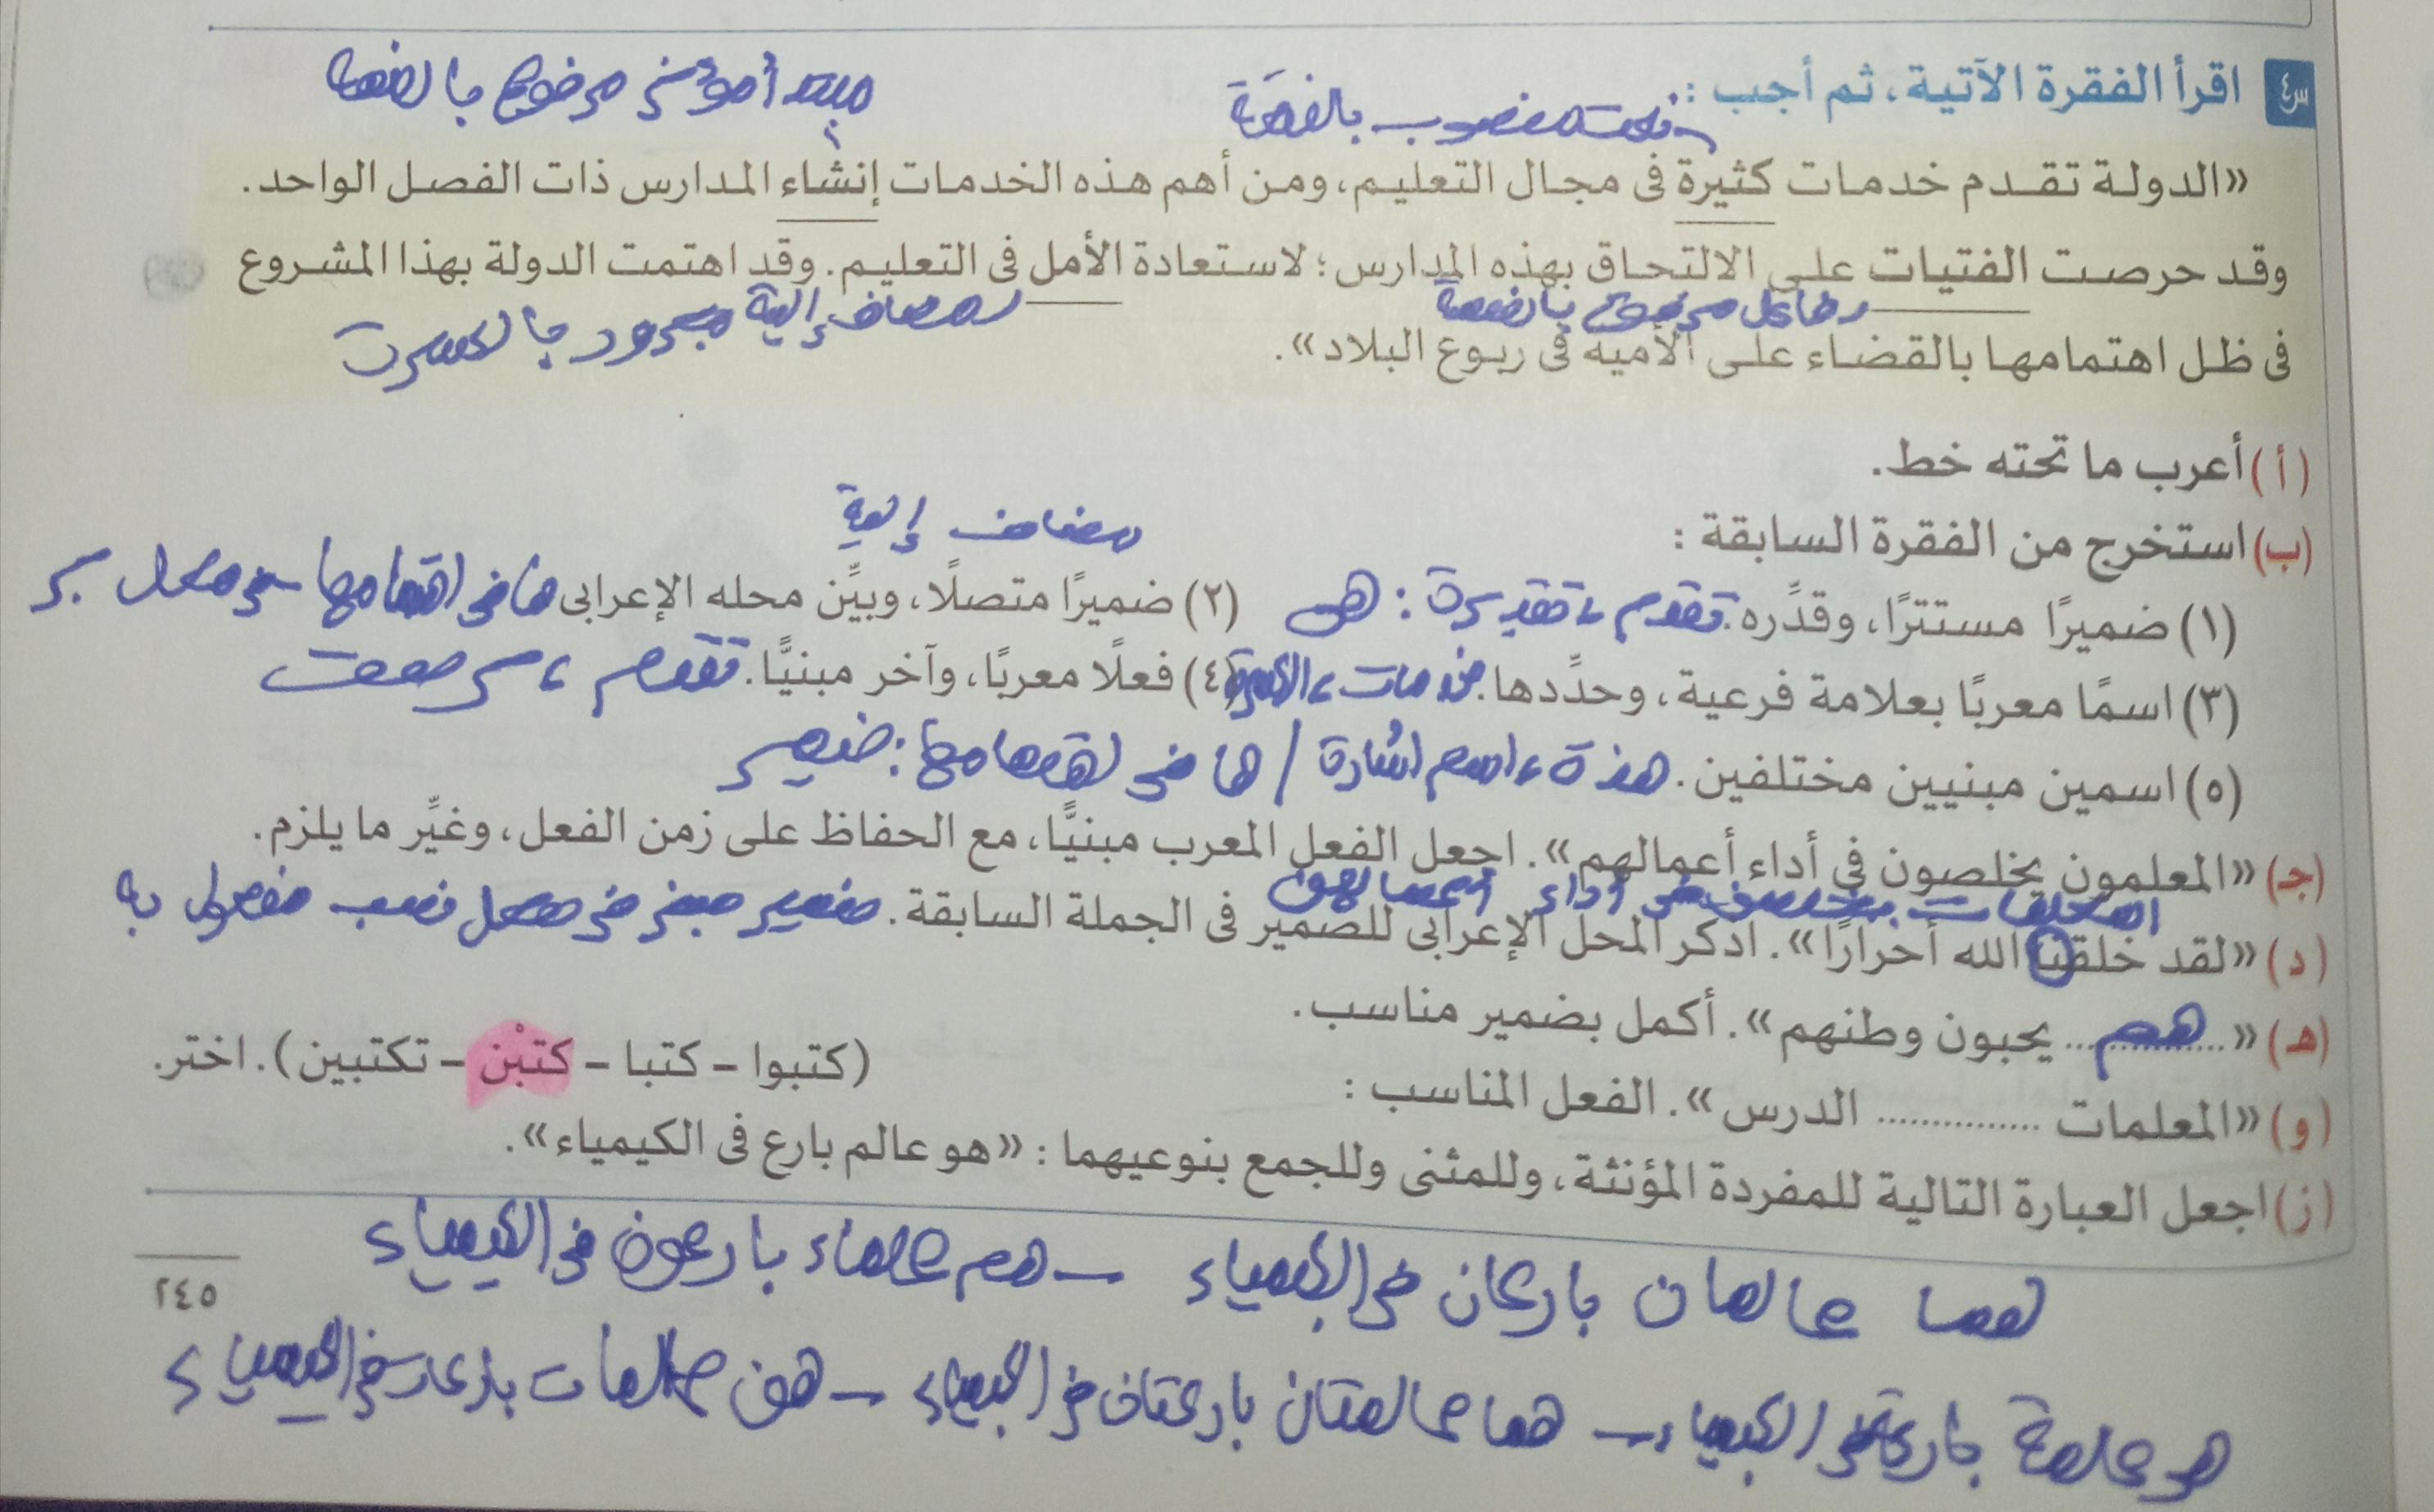 س٤ اقرأ الفقرة الآتية، ثم أجب :
نعت منصوب بالفتحة
مبتدأ مؤخر مرفوع بالضمة
«الدولة تقدم خدمات كثيرة فى مجال التعليم، ومن أهم هذه الخدمات إنشاء المدارس ذات الفصل الواحد.
وقد حرصت الفتيات على الالتحاق بهذه المدارس؛ لاستعادة الأمل فى التعليم. وقد اهتمت الدولة بهذا المشروع
فاعل مرفوع بالضمة
مضاف إلية مجرور بالكسرت
فى ظل اهتمامها بالقضاء على الأمية فى ربوع البلاد».
(أ) أعرب ما تحته خط.
(ب) استخرج من الفقرة السابقة :
مضاف إلية
(١) ضميرًا مستترًا، وقدِّره. تقدم، تقديرة : هى
(٢) ضميرًا متصلًا، وبيِّن محله الإعرابى ها فى اهتمامها فى محل جر
(٣) اسمًا معربًا بعلامة فرعية، وحدِّدها. خدمات، الكسرة
(٤) فعلًا معربًا، وآخر مبنيًّا. تقدم، حرصت
(٥) اسمين مبنيين مختلفين. هذة، اسم اشارة / ها فى اهتمامها : ضمير
(جـ) «المعلمون يخلصون فى أداء أعمالهم». اجعل الفعل المعرب مبنيًّا، مع الحفاظ على زمن الفعل، وغيِّر ما يلزم.
المعلمات يخلصن فى أداء أعمالهن
(د) «لقد خلقنا الله أحرارًا». اذكر المحل الإعرابى للضمير فى الجملة السابقة. ضمير مبنى فى محل نصب مفعول به
(هـ) «هم يحبون وطنهم». أكمل بضمير مناسب.
(و) «المعلمات ............... الدرس». الفعل المناسب : (كتبوا – كتبا – كتبْن – تكتبين). اختر.
(ز) اجعل العبارة التالية للمفردة المؤنثة، وللمثنى وللجمع بنوعيهما : «هو عالم بارع فى الكيمياء».
هما عالمان بارعان فى الكيمياء – هم علماء بارعون فى الكيمياء
هو علمة بارعة فى الكيمياء – هما عالمتان بارعتان فى الكيمياء – هن عالمات بارعات فى الكيمياء
٢٤٥